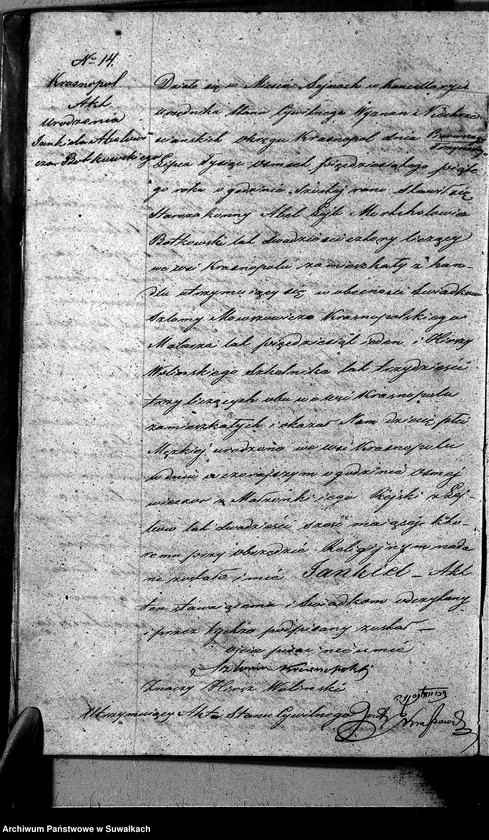 No 14.
Krasnopol
Akt
Urodzenia
Jankiela Abelowi-
cza Botkowskiego
Działo się w Mieście Sejnach w Kancellaryi
urzędnika Stanu Cywilnego Wyznań Niechrze
ściańskich Okręgu Krasnopol dnia
Lipca tysiąc ośmset pięćdziesiątego piąte
go roku o godzinie szóstej rano Stawił się
Starozakonny Abel Lejb Morchelowicz
Botkowski lat dwadzieścia cztery liczący
we wsi Krasnopolu zamieszkały z han-
dlu utrzymujący się w obecności świadków
Szlomy Mowszowicza Krasnopolskiego
Malarza lat pięćdziesiąt jeden i Hirszy
Wolinskiego szkolnika lat trzydzieści
trzy liczących obu w wsi Krasnopolu
zamieszkałych i okazał Nam dziecię płci
Męzkiej urodzone we wsi Krasnopolu
w dniu wczorajszym o godzinie ósmej
wieczor z Małżonki jego Rejski z
lat dwadzieścia sześć mającej któ-
remu przy obrzędzie Religijnym nada
ne zostało imie Jankiel - Akt
ten stawającemu i świadkom odczytany
i przez tychże podpisany został -
ojciec pisać nie umie
Szloma Krasnopolski
Znaczy Hersz Wolinski
Utrzymujący Akta Stanu Cywilnego
Archiwum Państwowe w Suwałkach